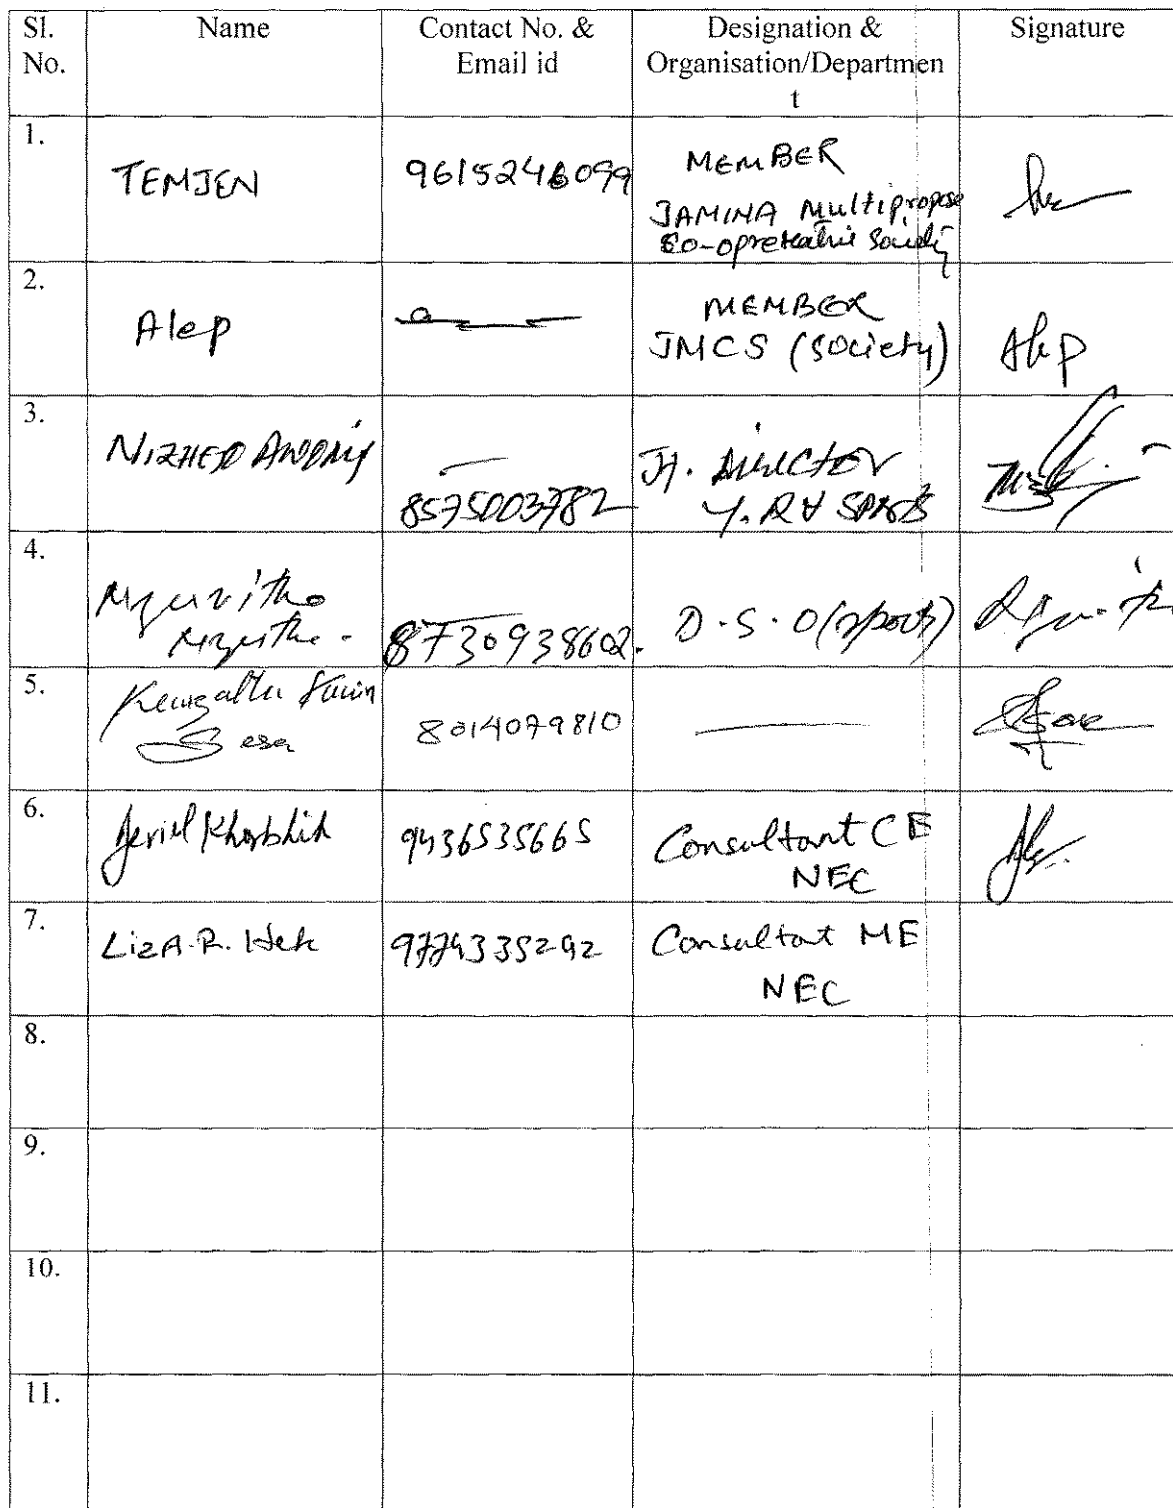 Sl. No.
Name
Contact No. & Email id
Designation & Organisation/Departmen t
Signature
1.
TEMJEN
9615246099
MEMBER
JAMINA Multipropose
Co-opretative Society
2.
Alep
MEMBER
JMCS (Society)
Alep
3.
NIZHETO
8575003782
Jt. Director
Y. R & SPORTS
4.
8730938602.
D.S.O (sports)
5.
8014079810
6.
Jeriel Kharbhih
9436535665
Consultant CE
NEC
7.
LizA.R. Hek
9774335292
Consultant ME
NEC
8.
9.
10.
11.